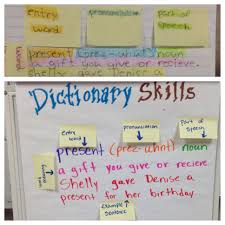 entry
word
pronunciation
part of
speech
present (prez-uhnt) noun
a gift you give or recieve.
Shelly gave Denise a
Dictionary Skills
entry
word
pronunciation
part of
speech
present (prez-uhnt) noun
a gift you give or recieve.
Shelly gave Denise a
present for her birthday.
example
sentence